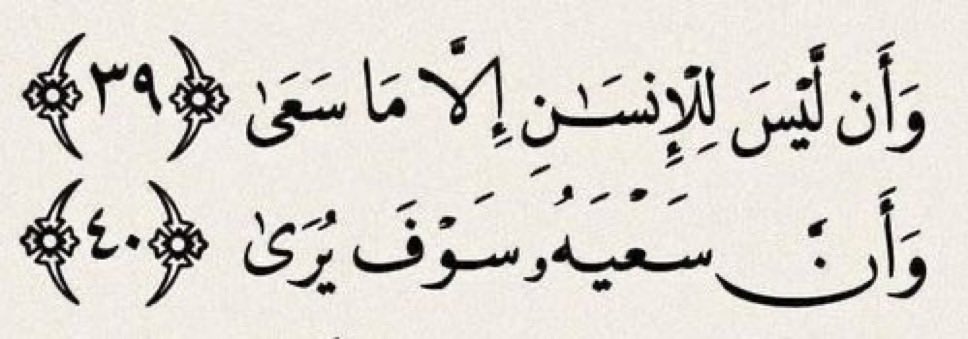 وَأَن لَّيْسَ لِلْإِنسَـٰنِ إِلَّا مَا سَعَىٰ ﴿٣٩﴾
وَأَنَّ سَعْيَهُۥ سَوْفَ يُرَىٰ ﴿٤٠﴾